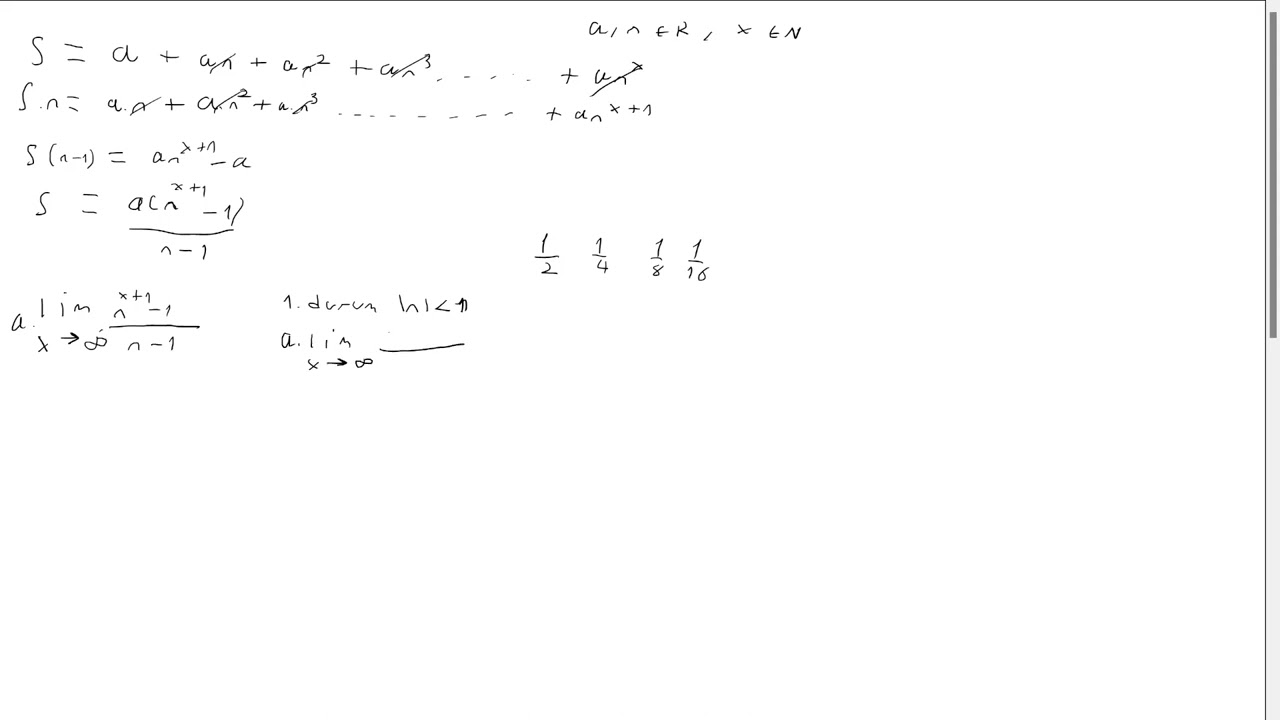 a, n ∈ R, x ∈ N
S = a + an + an² + an³ ....... + an^x
S.n = a.n + a.n² + a.n³ .......... + an^(x+1)
S(n-1) = an^(x+1) - a
S = a(n^(x+1) - 1) / (n-1)
1/2 1/4 1/8 1/16
a. lim x→∞ (n^(x+1) - 1) / (n-1)
1. durum |n| < 1
a. lim x→∞